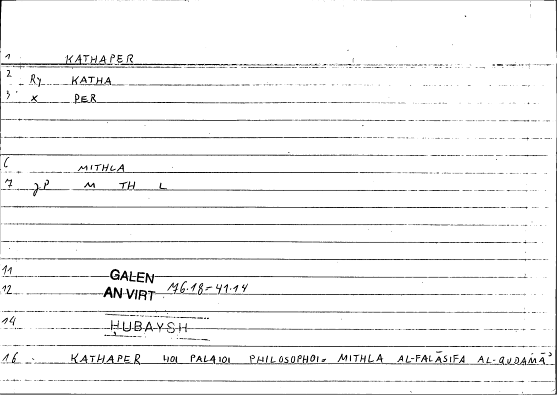 1 KATHAPER
2 Ry KATHA
3 x PER
6 MITHLA
7 gP M TH L
11 GALEN
12 AN VIRT 76.18=41.14
14 ḤUBAYSH
16 KATHAPER HOI PALAIOI PHILOSOPHOI= MITHLA AL-FALĀSIFA AL-QUDAMĀʾ